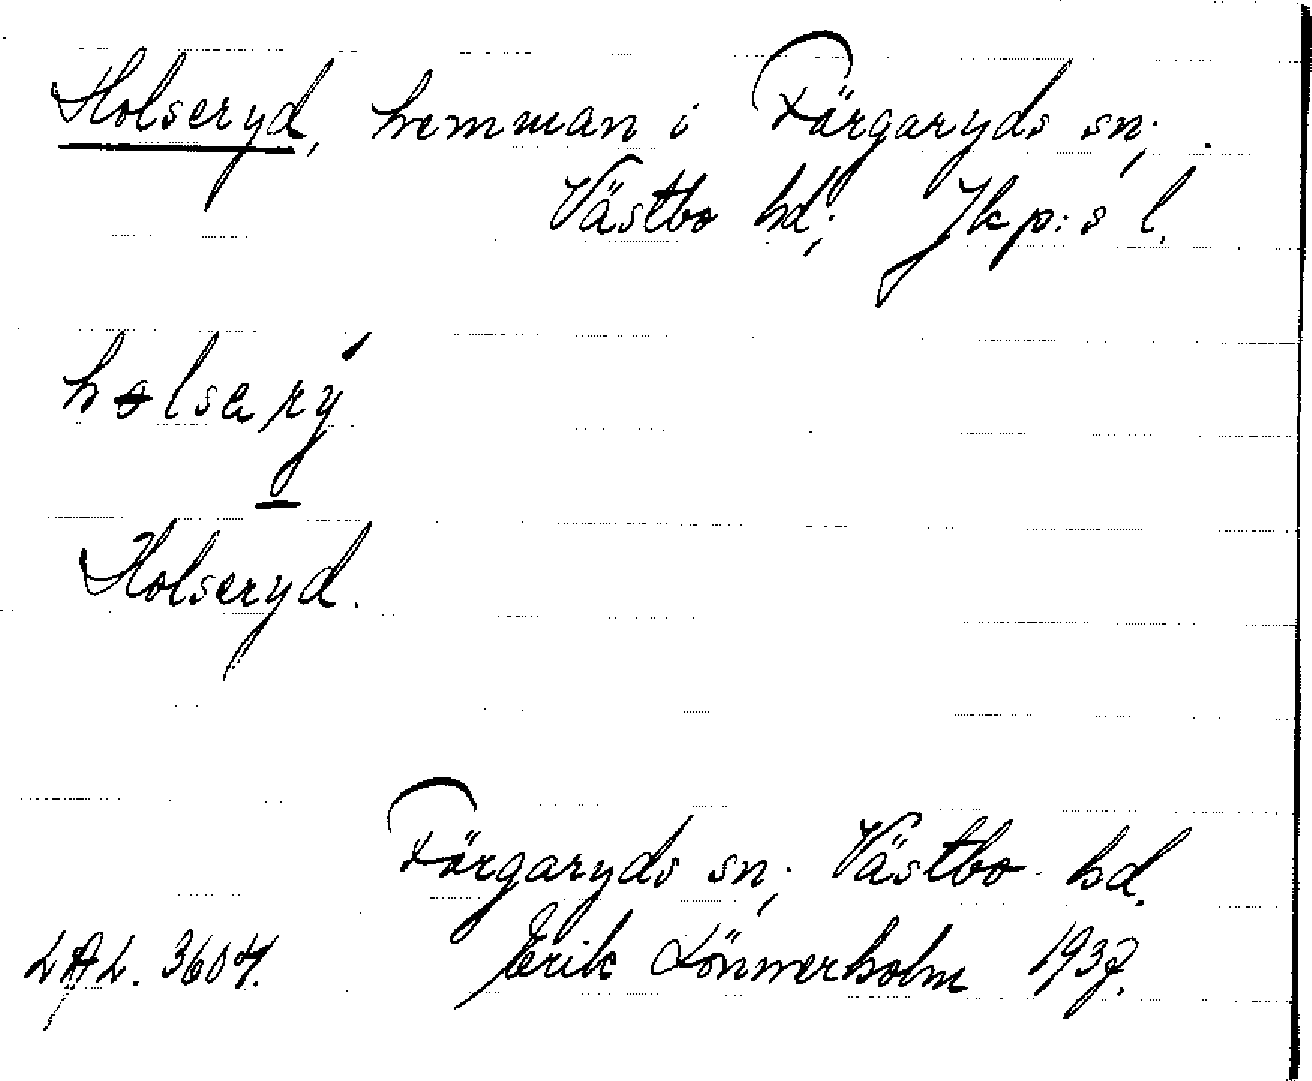 Holseryd, hemman i Färgaryds sn;
Västbo hd; Jkp:s l.
holsarý
Holseryd.
Färgaryds sn; Västbo hd.
LAL. 3604. Erik Lönnerholm 1937.